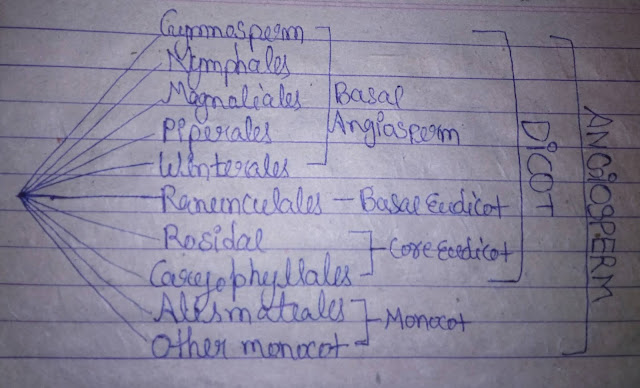 Gymnosperm
Nymphales
Magnaliales
Basal
Piperales
Angiasperm
Winterales
Ranunculales - Basal Eudicot
Rosidal
Core Eudicot
Caryophyllales
Alismatales
Monocot
Other monocot
DICOT
ANGIOSPERM